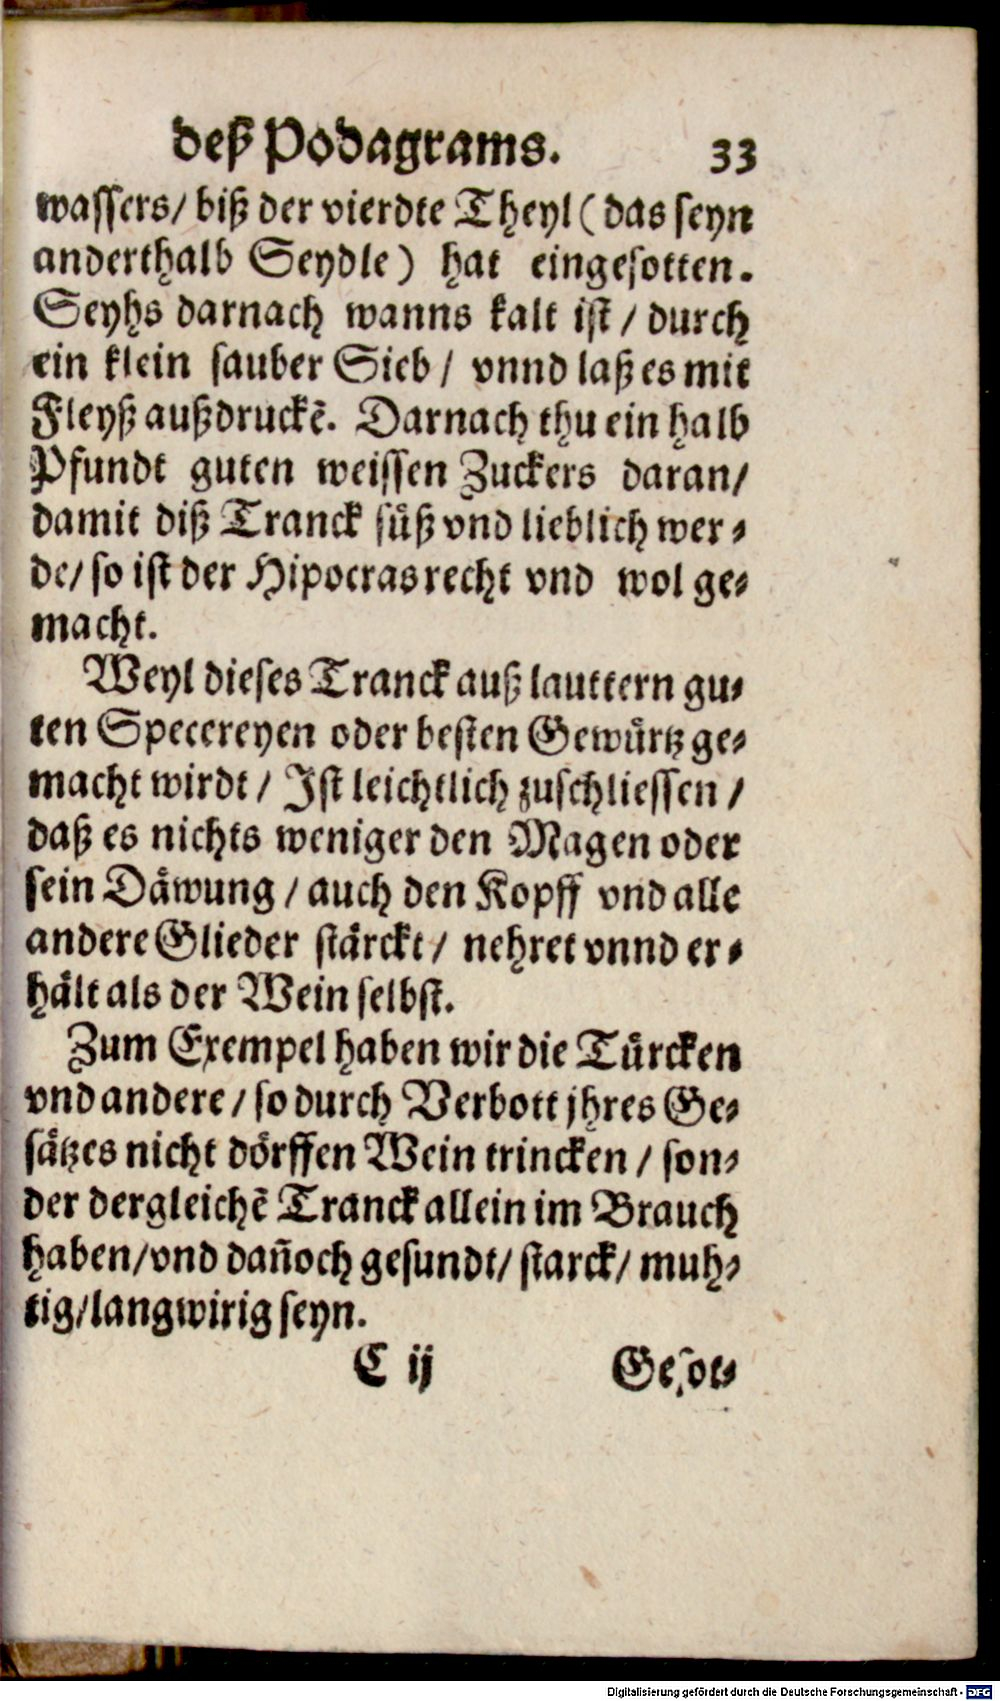 deß Podagrams. 33
wassers/ biß der vierdte Theyl (das seyn
anderthalb Seydle) hat eingesotten.
Seyhs darnach wanns kalt ist / durch
ein klein sauber Sieb / vnnd laß es mit
Fleyß außdruckẽ. Darnach thu ein halb
Pfundt guten weissen Zuckers daran/
damit diß Tranck süß vnd lieblich wer⸗
de/ so ist der Hipocras recht vnd wol ge⸗
macht.
Weyl dieses Tranck auß lauttern gu⸗
ten Specereyen oder besten Gewürtz ge⸗
macht wirdt / Ist leichtlich zuschliessen /
daß es nichts weniger den Magen oder
sein Däwung / auch den Kopff vnd alle
andere Glieder stärckt / nehret vnnd er⸗
hält als der Wein selbst.
Zum Exempel haben wir die Türcken
vnd andere / so durch Verbott jhres Ge⸗
sätzes nicht dörffen Wein trincken / son⸗
der dergleichẽ Tranck allein im Brauch
haben/vnd dañoch gesundt/ starck/ muh⸗
tig/langwirig seyn.
C ij Gesot⸗
Digitalisierung gefördert durch die Deutsche Forschungsgemeinschaft - DFG